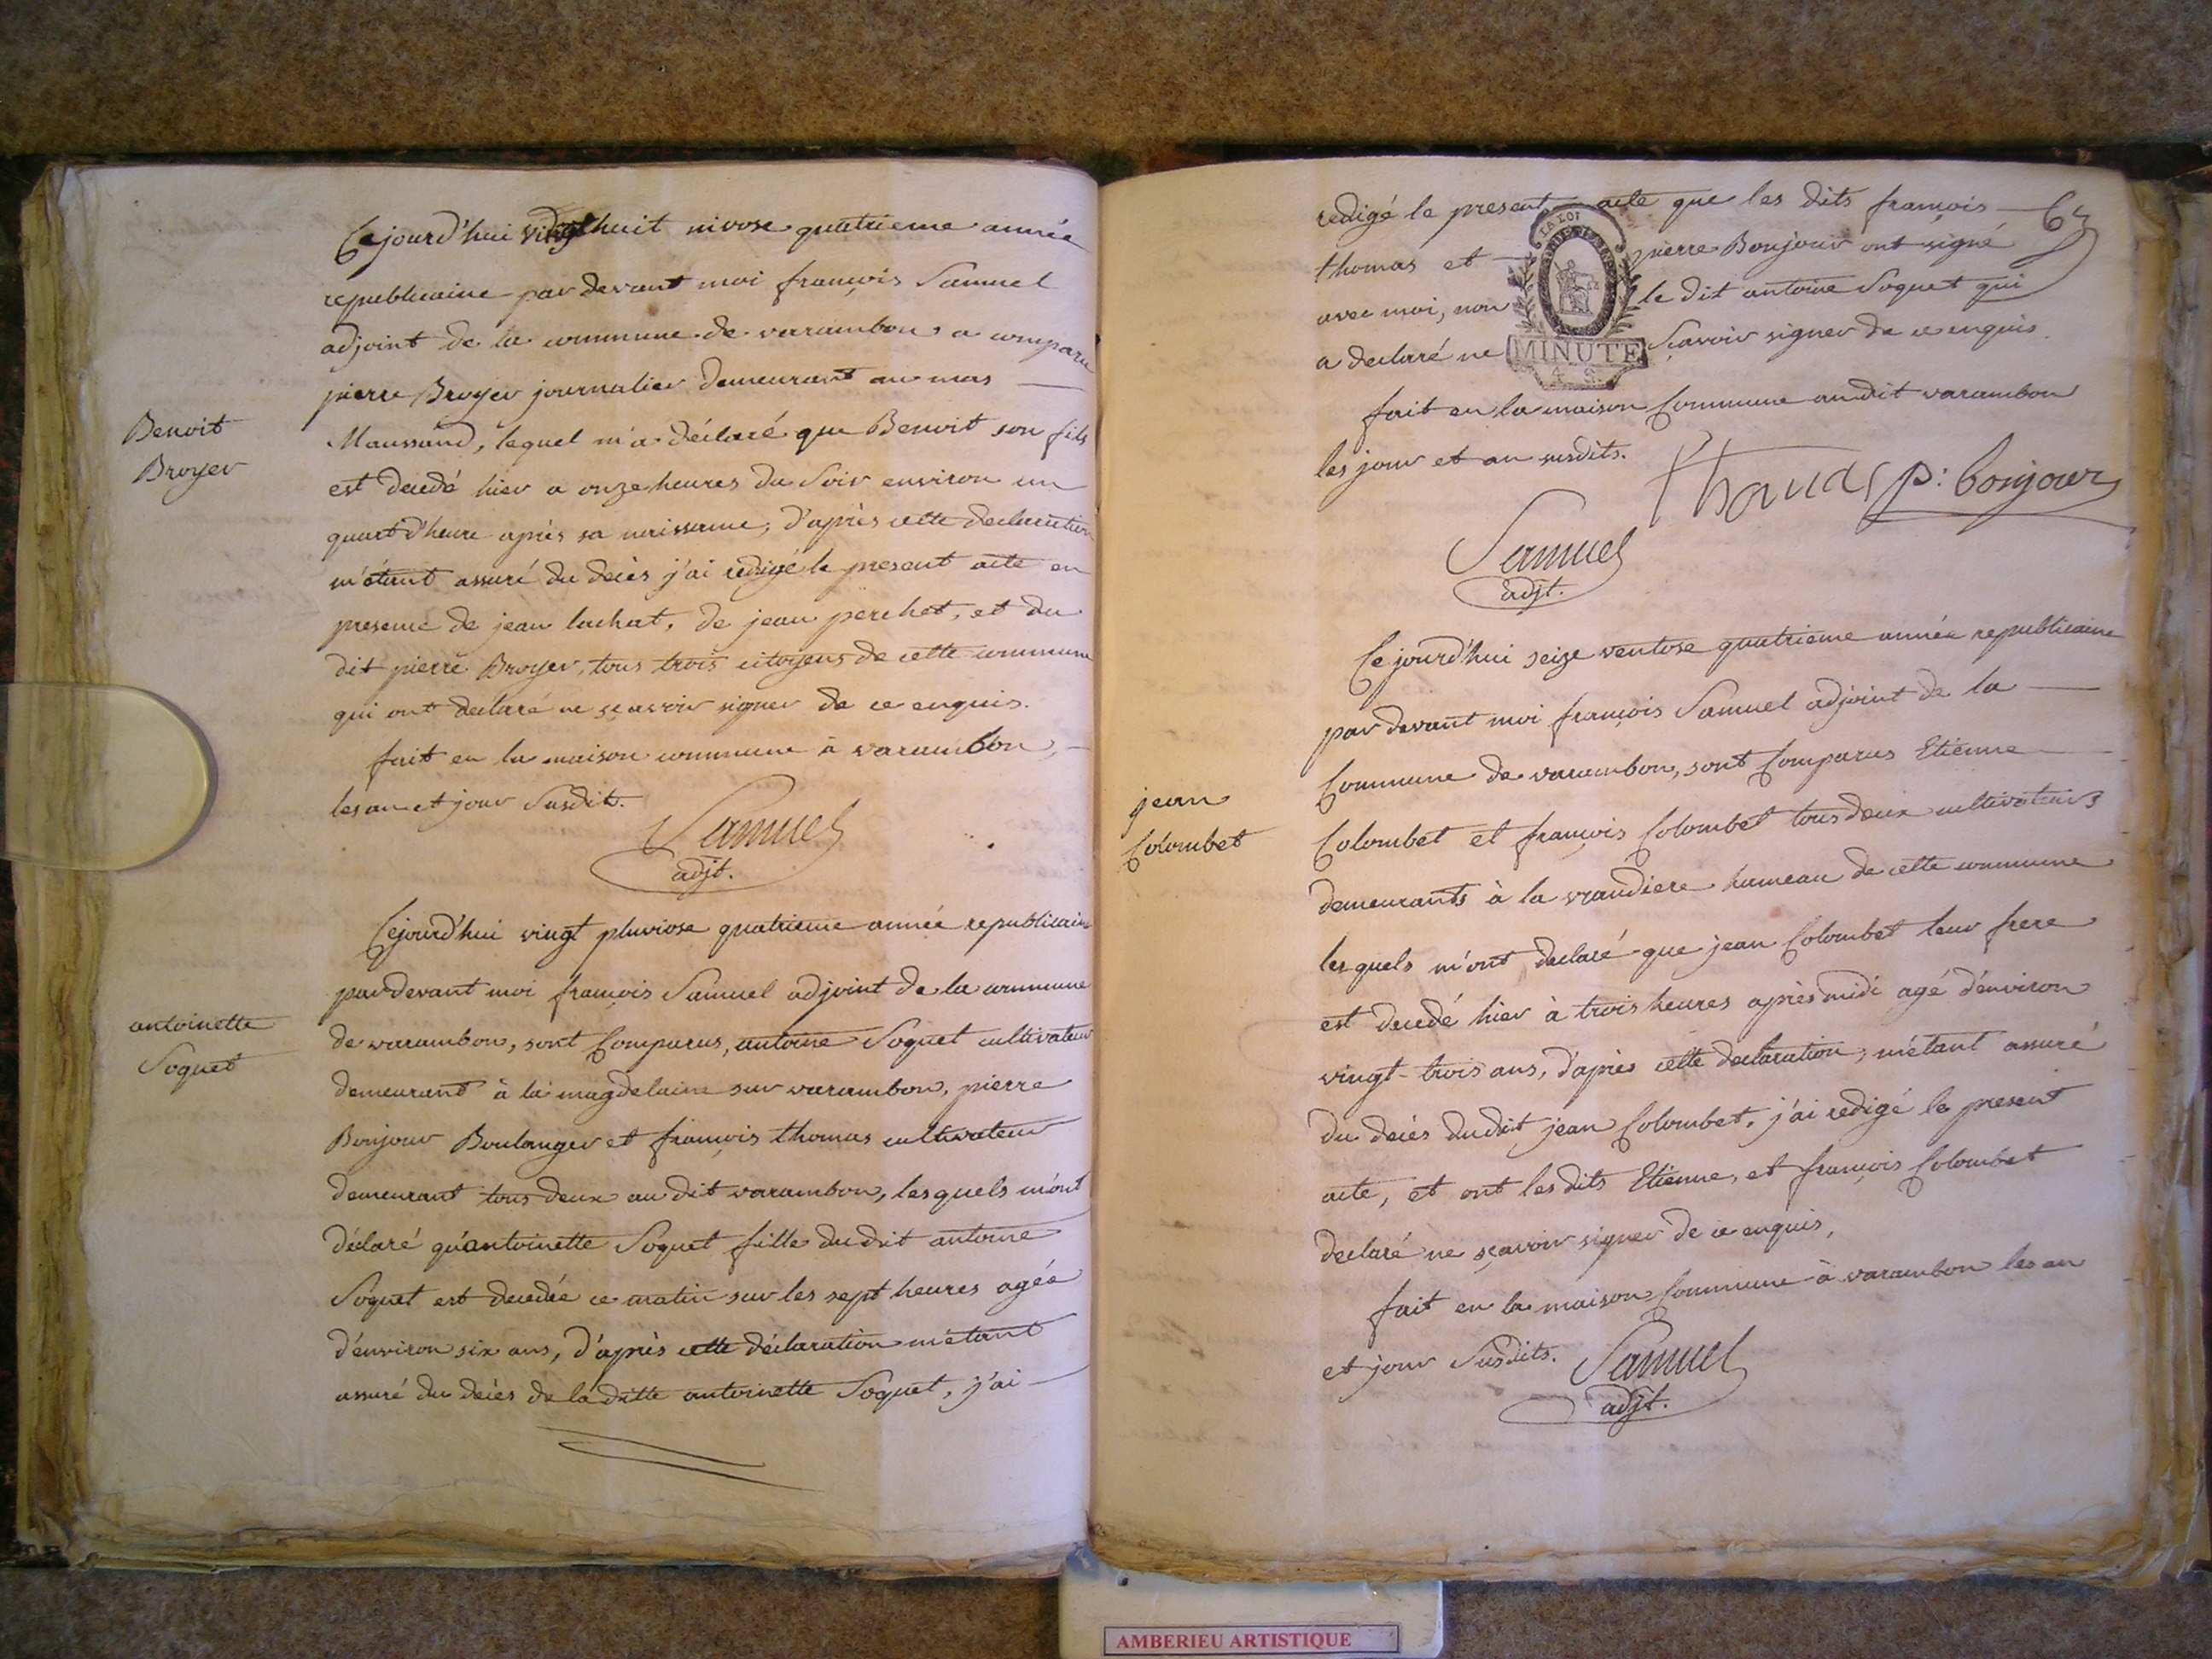 Cejourd'hui vingt huit nivose quatrieme année
republicaine par devant moi françois Samuel
adjoint de la commune de varambon a comparu
pierre Broyer journalier demeurant au mas
Benoit
Broyer
Maussand, lequel m'a déclaré que Benoit son fils
est decedé hier a onze heures du Soir environ un
quart d'heure après sa naissance, d'après cette declaration
m'étant assuré du decès j'ai redigé le present acte en
presence de jean lachat, de jean perchet, et du
dit pierre Broyer, tous trois citoyens de cette commune
qui ont déclaré ne sçavoir signer de ce enquis.
fait en la maison commune à varambon,
les an et jour Susdit.
Samuel
adjt.
Cejourd'hui vingt pluviose quatrieme année republicaine
pardevant moi françois Samuel adjoint de la commune
antoinette
Soquet
de varambon, sont Comparus, antoine Soquet cultivateur
demeurant à la magdelaine sur varambon, pierre
Bonjour Boulanger et françois thomas cultivateur
demeurant tous deux au dit varambon, lesquels m'ont
déclaré qu'antoinette Soquet fille du dit antoine
Soquet est decedée ce matin sur les sept heures agée
d'environ six ans, d'après cette déclaration m'étant
assuré du decès de la ditte antoinette Soquet, j'ai
redigé le present acte que les dits françois
thomas et pierre Bonjour ont signé
avec moi, non le dit antoine Soquet qui
a declaré ne sçavoir signer de ce enquis
LA LOI
MINUTE
fait en la maison Commune au dit varambon
les jour et an susdits.
thomas p: bonjour
Samuel
adjt.
Ce jourd'hui seize ventose quatrieme année republicaine
par devant moi françois Samuel adjoint de la
Commune de varambon, sont Comparus Etienne
jean
Colombet
Colombet et françois Colombet tous deux cultivateurs
demeurants à la vraudiere hameau de cette commune
lesquels m'ont declaré que jean Colombet leur frere
est decedé hier à trois heures après midi agé d'environ
vingt-trois ans, d'après cette declaration, m'étant assuré
du decès dudit jean Colombet, j'ai redigé le present
acte, et ont les dits Etienne, et françois Colombet
declaré ne sçavoir signer de ce enquis,
fait en la maison Commune à varambon les an
et jour Susdits.
Samuel
adjt.
AMBERIEU ARTISTIQUE